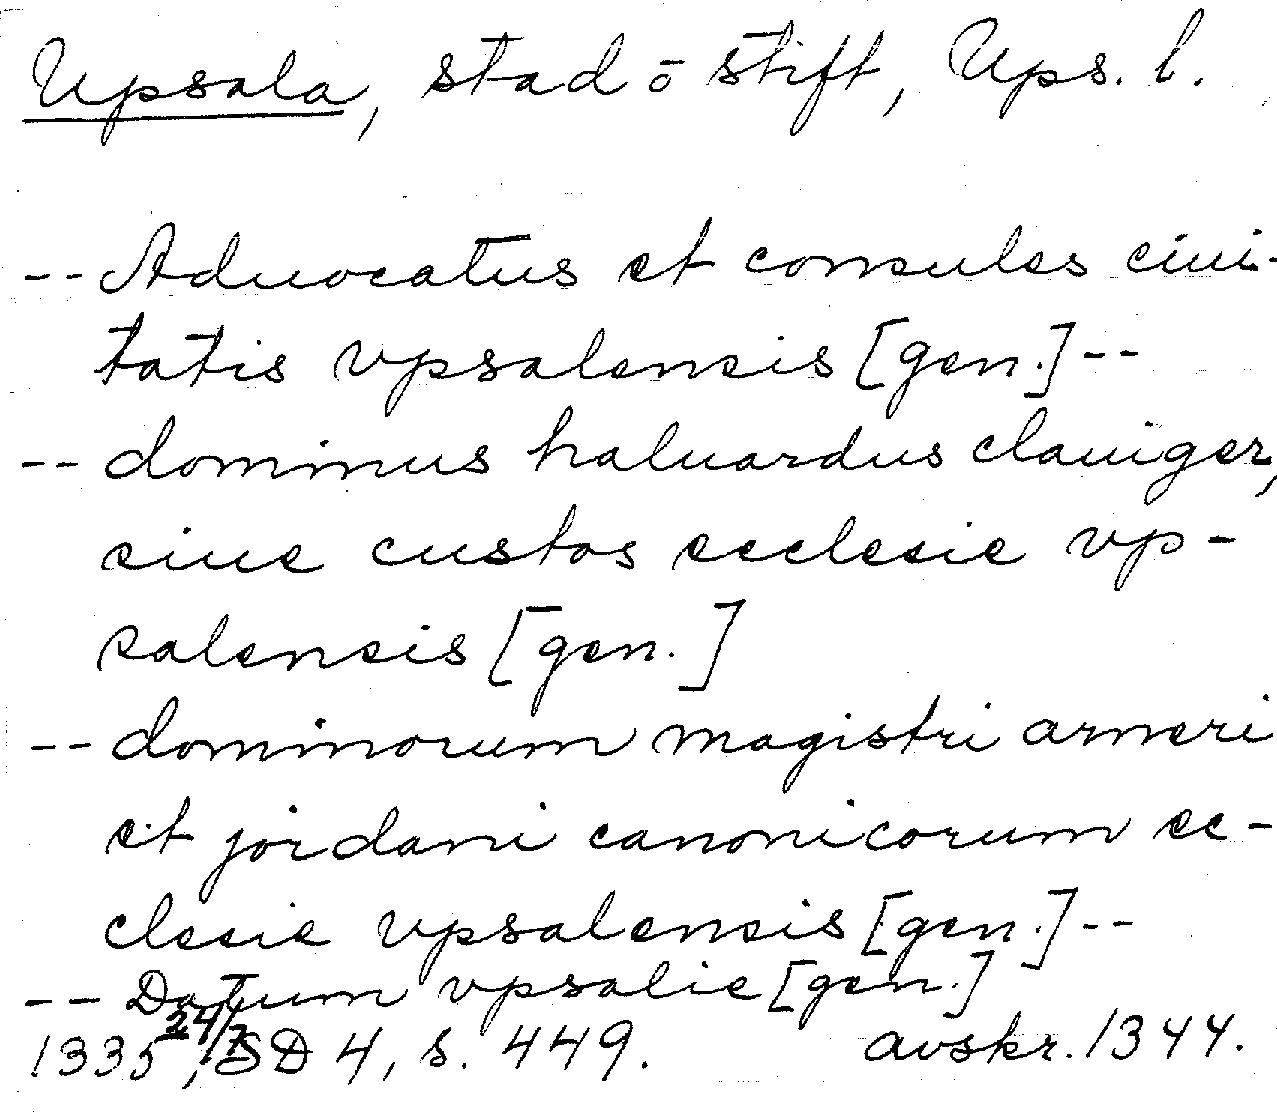 Upsala, stad ō stift, Ups. l.
-- Aduocatus et consules ciui-
tatis vpsalensis [gen.] --
-- dominus haluardus clauiger,
siue custos ecclesie vp-
salensis [gen.]
-- dominorum magistri arneri
et jordani canonicorum ec-
clesie vpsalensis [gen.] --
-- Datum vpsalie [gen.]
1335 24/7, SD 4, s. 449. avskr. 1344.